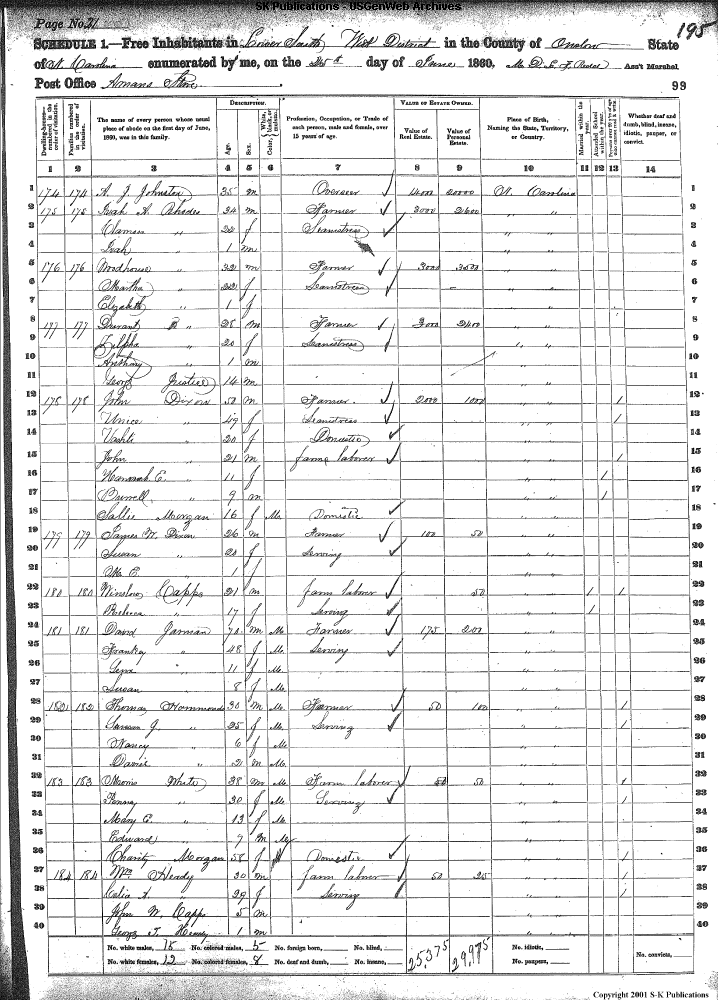 SK Publications - USGenWeb Archives
Page No. 21
195
SCHEDULE 1.—Free Inhabitants in Lower South West District in the County of Onslow State
of N. Carolina enumerated by me, on the day of June 1860, Ass't Marshal.
Post Office
99
DESCRIPTION.
VALUE OF ESTATE OWNED.
Dwelling-houses—numbered in the order of visitation.
Families numbered in the order of visitation.
The name of every person whose usual place of abode on the first day of June, 1860, was in this family.
Age.
Sex.
Color, White, black, or mulatto.
Profession, Occupation, or Trade of each person, male and female, over 15 years of age.
Value of Real Estate.
Value of Personal Estate.
Place of Birth, Naming the State, Territory, or Country.
Married within the year.
Attended School within the year.
Whether deaf and dumb, blind, insane, idiotic, pauper, or convict.
1 2 3 4 5 6 7 8 9 10 11 12 13 14
1 174 174 A. J. Johnston 35 m Overseer 14000 20000 N. Carolina 1
2 175 175 A. Rhodes 34 m Farmer 3000 2600 " " 2
3 f Seamstress " " 3
4 1 m " " 4
5 176 176 Woodhouse " 32 m Farmer 3000 3500 " " 5
6 Martha " 22 f Seamstress " " 6
7 Elizabeth " 1 f " " 7
8 177 177 Durant " 28 m Farmer 3000 2400 " " 8
9 Zilpha " 20 f Seamstress " " 9
10 Anthony " 1 m " " 10
11 Georg Justice 14 m " " 11
12 178 178 John Dixon 50 m Farmer 2000 1000 " " 1 12
13 Unice " 49 f Seamstress " " 1 13
14 Vashti " 20 f Domestic " " 14
15 John " 21 m farm laborer " " 1 15
16 Hannah E. " 11 f " " 1 16
17 Burrell " 9 m " " 1 17
18 Sallie Morgan 16 f M. Domestic " " 18
19 179 179 James W. Dixon 26 m Farmer 100 50 " " 19
20 Susan " 20 f Serving " " 20
21 M. E. " 1 f " " 21
22 180 180 Winslow Capps 21 m farm laborer 50 " " 1 1 22
23 Rebecca " 17 f Serving " " 1 23
24 181 181 David Jarman 70 m M. Farmer 175 200 " " 24
25 Frankey " 48 f M. Serving " " 25
26 " 11 f M. " " 26
27 Susan " 8 f M. " " 27
28 182 182 Thomas Hammonds 30 m M. Farmer 50 100 " " 1 28
29 " 25 f M. Serving " " 1 29
30 Nancy " 6 f M. " " 30
31 David " 2 m M. " " 31
32 183 183 White 38 m M. Farm laborer 50 50 " " 1 32
33 " 30 f M. Serving " " 1 33
34 Mary E. " 13 f M. " " 34
35 Edward " 7 m M. " " 35
36 Charity Morgan 58 f Domestic " " 1 36
37 184 184 Wm Heady 30 m farm laborer 50 25 " " 1 37
38 Celia A. " 29 f Serving " " 1 38
39 John W. Capps 5 m " " 39
40 Georg T. 1 m " " 40
No. white males, 15 No. colored males, 5 No. foreign born, No. blind, 25,375 29,975 No. idiotic, No. convicts,
No. white females, 12 No. colored females, 8 No. deaf and dumb, No. insane, No. paupers,
Copyright 2001 S-K Publications